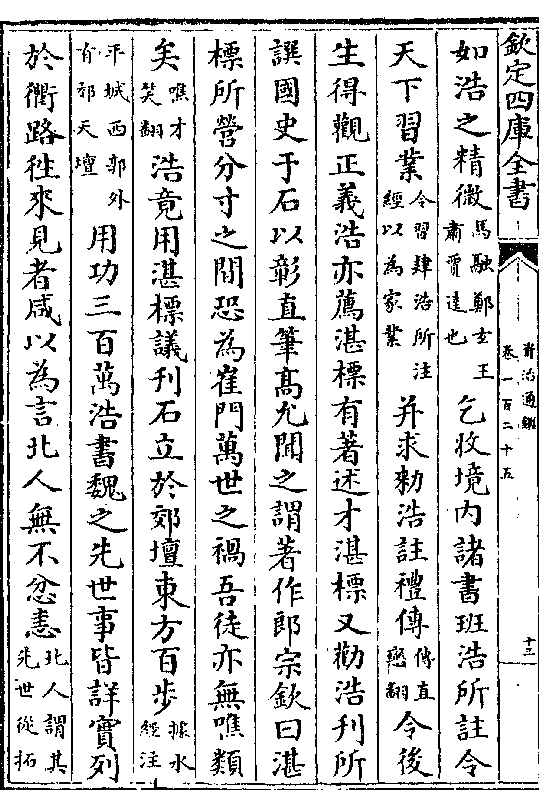 欽定四庫全書
資治通鑑
卷一百二十五
十三
如浩之精微馬融鄭玄王肅賈逵也乞收境内諸書班浩所註令
天下習業令習肄浩所注經以為家業并求勅浩註禮傳傳直戀翻令後
生得觀正義浩亦薦湛標有著述才湛標又勸浩刊所
譔國史于石以彰直筆髙允聞之謂著作郎宗欽曰湛
標所營分寸之間恐為崔門萬世之禍吾徒亦無噍類
矣噍才笑翻浩竟用湛標議刊石立於郊壇東方百步據水經注
平城西郭外有郊天壇用功三百萬浩書魏之先世事皆詳實列
於衢路往來見者咸以為言北人無不忿恚北人謂其先世從拓